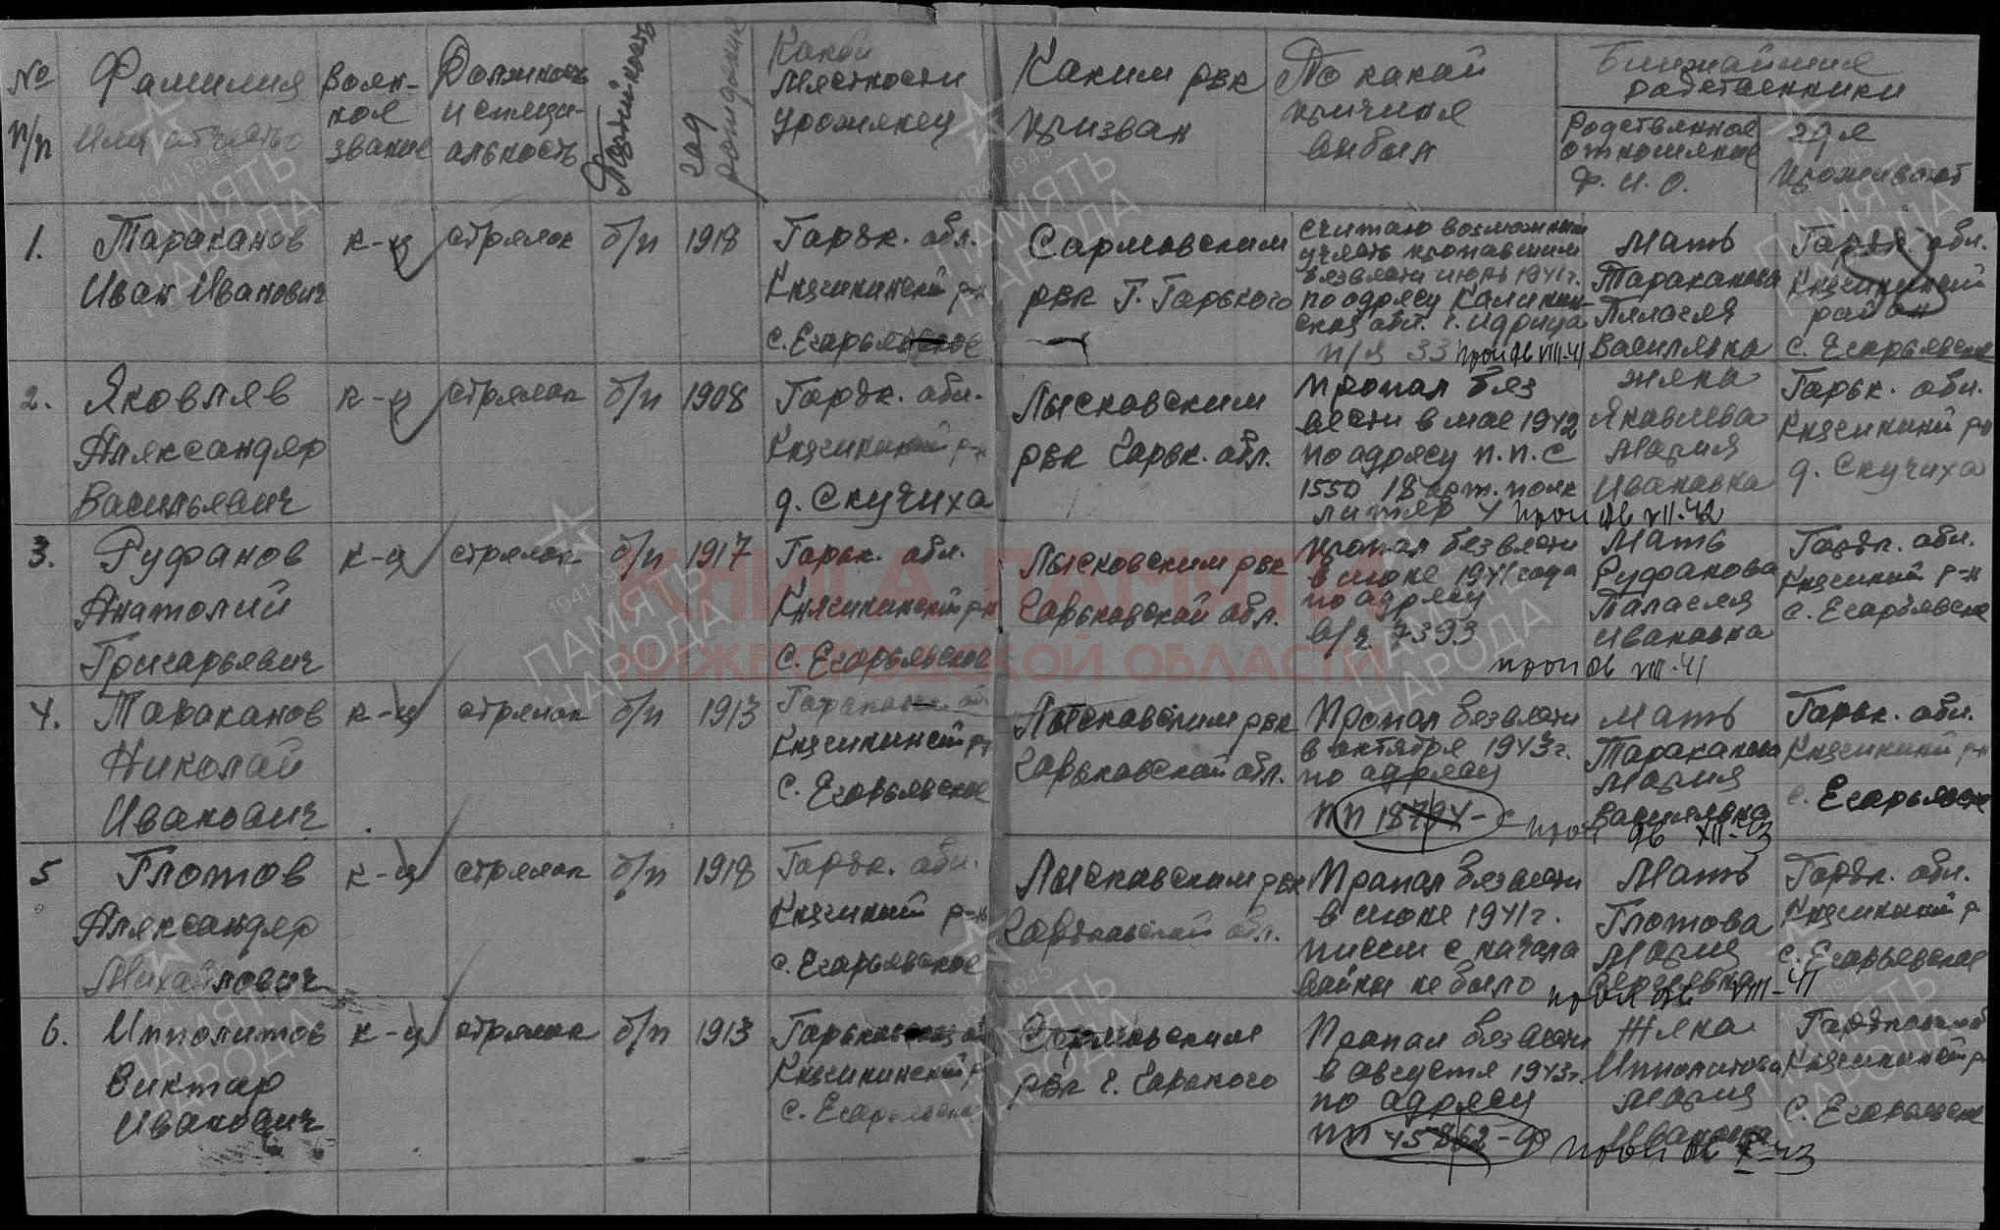 № п/п
Фамилия Имя отчество
Воен-ное звание
Должность и специ-альность
Партийность
год рождения
Какой местности уроженец
Каким рвк призван
По какой причине выбыл
Ближайшие родственники
Родственное отношение Ф. И. О.
где проживают
1.
Тараканов
Иван Иванович
к-ц
стрелок
б/п
1918
Горьк. обл.
Княгининский р-н
с. Егорьевское
Сормовским
рвк г. Горького
Считаю возможным
учесть пропавшим
без вести июль 1941 г.
по адресу Калинин-
ская обл. г. Идрица
п/я 33 проп дв VIII-41
Мать
Тараканова
Пелагея
Васильевна
Горьк. обл.
Княгининский
район
с. Егорьевское
2.
Яковлев
Александр
Васильевич
к-ц
стрелок
б/п
1908
Горьк. обл.
Княгининский р-н
д. Скучиха
Лысковским
рвк Горьк. обл.
Пропал без
вести в мае 1942
по адресу п.п.с
1550 18 арт. полк
литер 4 проп дв VII-42
жена
Яковлева
Мария
Ивановна
Горьк. обл.
Княгиниий р-н
д. Скучиха
3.
Руфанов
Анатолий
Григорьевич
к-ц
стрелок
б/п
1917
Горьк. обл.
Княгининский р-н
с. Егорьевское
Лысковским рвк
Горьковской обл.
Пропал без вести
в июне 1941 года
по адресу
в/ч. 7393
проп дв VIII-41
Мать
Руфанова
Паласея
Ивановна
Горьк. обл.
Княгиний р-н
с. Егорьевское
4.
Тараканов
Николай
Иванович
к-ц
стрелок
б/п
1913
Горьковск. обл
Княгининский р-н
с. Егорьевское
Лысковским рвк
Горьковской обл.
Пропал без вести
в октябре 1943 г.
по адресу
пп 18794-с проп дв XII-43
Мать
Тараканова
Мария
Васильевна
Горьк. обл.
Княгиний р-н
с. Егорьевское
5
Глотов
Александр
Михайлович
к-ц
стрелок
б/п
1918
Горьк. обл.
Княгиний р-н
с. Егорьевское
Лысковским рвк
Горьковской обл.
Пропал без вести
в июне 1941 г.
писем с начала
войны не было проп дв VIII-41
Мать
Глотова
Мария
Сергеевна
Горьк. обл.
Княгиний р
с. Егорьевское
6.
Ипполитов
Виктор
Иванович
к-ц
стрелок
б/п
1913
Горьковская об
Княгининский р
с. Егорьевское
Сормовским
рвк г. Горького
Пропал без вести
в августе 1943 г.
по адресу
пп 45862-ф проп дв X-43
Жена
Ипполитова
Мария
Ивановна
Горьковской
Княгининский р
с. Егорьевское
КНИГА ПАМЯТИ
НИЖЕГОРОДСКОЙ ОБЛАСТИ
1941-1945
ПАМЯТЬ
НАРОДА